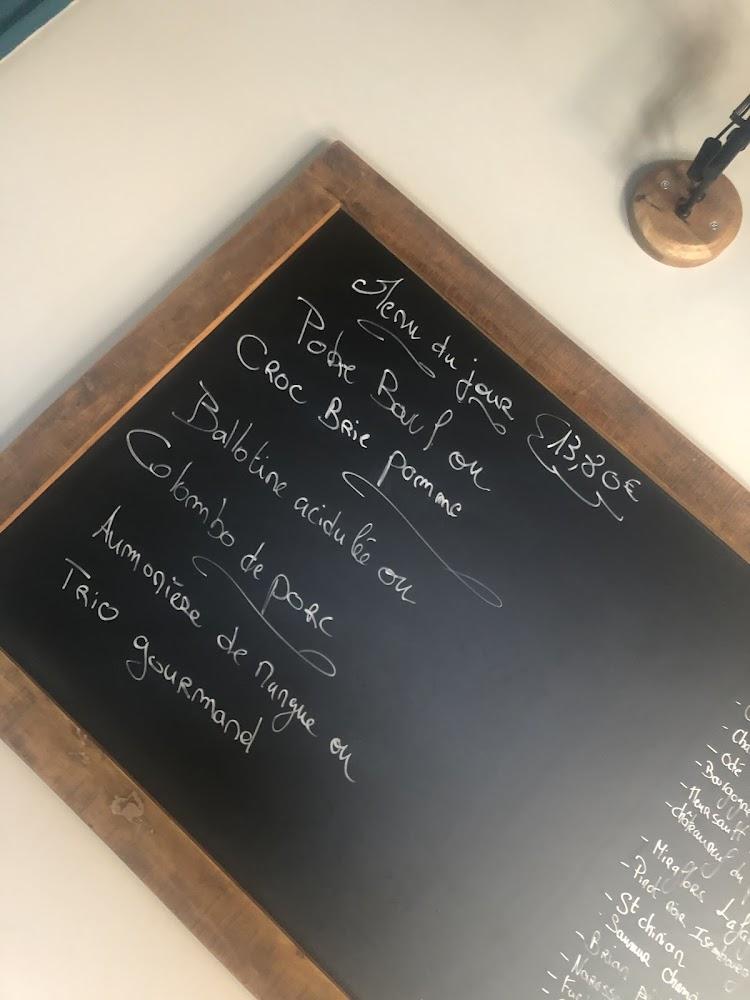 Menu du jour 13,80€
Poke Bowl ou
Croc Brie pomme
Ballotine acidulée ou
Colombo de porc
Aumonière de mangue ou
Trio gourmand
- Côte
- Bourgogne
- Meursault
- Châteauneuf du
- Miraflors Lafa
- Pinot noir
- St chinian
- Saumur
- Brian